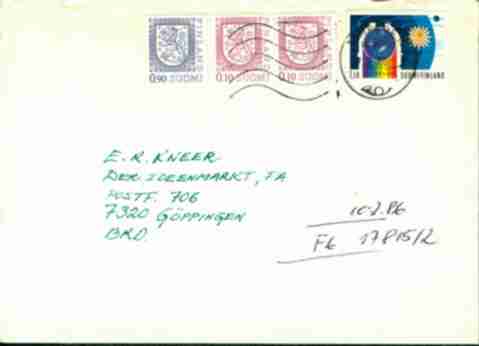 FINLAND FINLAND FINLAND
0,90 SUOMI 0,10 SUOMI 0,10 SUOMI SUOMI FINLAND
E. R. KNEER
DER IDEENMARKT, FA
POSTF. 706
7320 GÖPPINGEN
BRD.
F6 17815/2